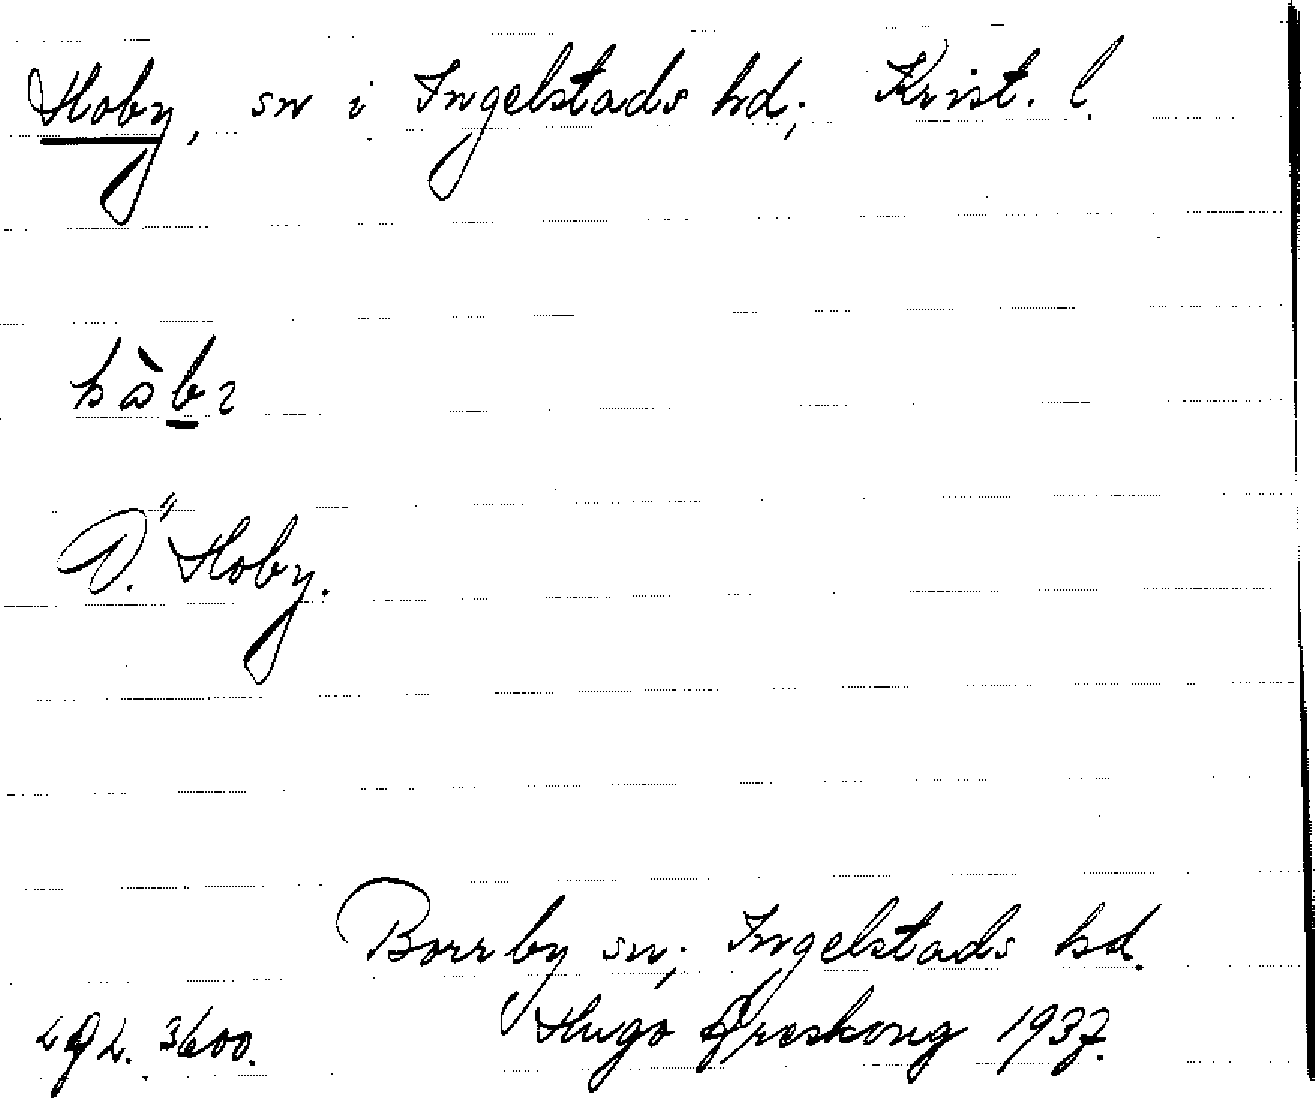 Hoby, sn i Ingelstads hd; Krist. l.
Ö. Hoby.
Borrby sn; Ingelstads hd.
Hugo Areskoug 1937.
3600.